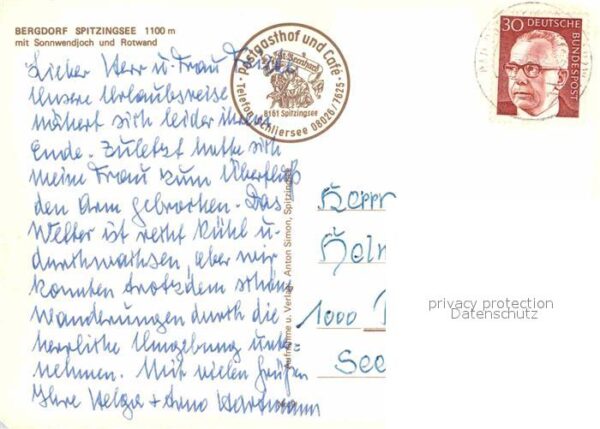 BERGDORF SPITZINGSEE 1100 m
mit Sonnwendjoch und Rotwand
Lieber Herr u. Frau
Unsere Urlaubsreise
nähert sich leider ihrem
Ende. Zuletzt hatte sich
meine Frau zum Überfluß
den Arm gebrochen. Das
Wetter ist recht kühl u.
durchwachsen, aber wir
konnten trotzdem schöne
Wanderungen durch die
herrliche Umgebung unter
nehmen. Mit vielen Grüßen
Ihre Helga + Arno Hartmann
Postgasthof und Café
St. Bernhard
8161 Spitzingsee
Telefon Schliersee 08026/7625
Aufnahme u. Verlag Anton Simon, Spitzingsee
30 DEUTSCHE BUNDESPOST
Herrn
Helm
1000
See
privacy protection
Datenschutz